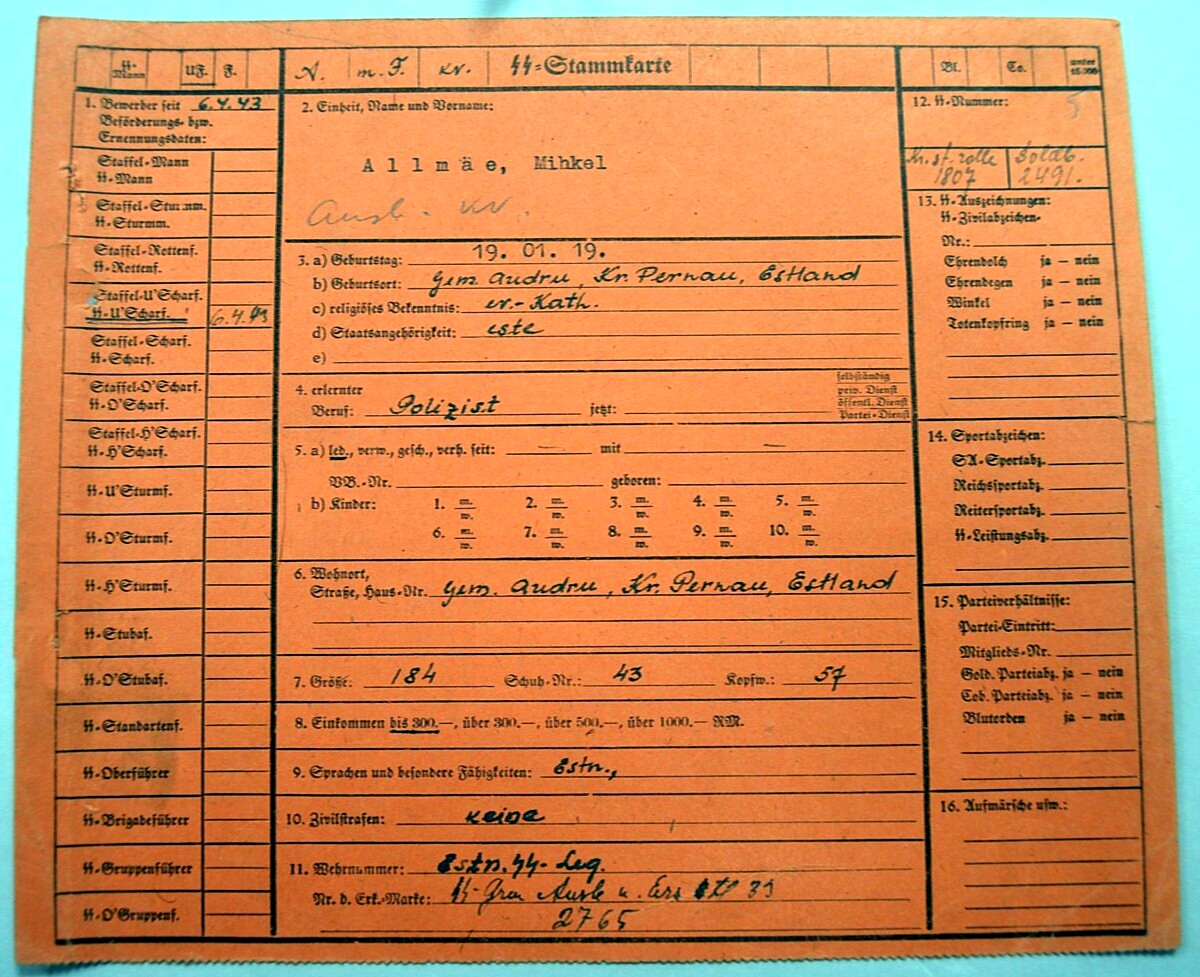 ϟϟ-Mann UF. F. A. m. F. kv. ϟϟ-Stammkarte Bl. Co. unter 15.000
1. Bewerber seit 6.4.43
Beförderungs- bzw.
Ernennungsdaten:
Staffel-Mann
ϟϟ-Mann
Staffel-Sturmm.
ϟϟ-Sturmm.
Staffel-Rottenf.
ϟϟ-Rottenf.
Staffel-U'Scharf.
ϟϟ-U'Scharf. 6.4.43
Staffel-Scharf.
ϟϟ-Scharf.
Staffel-O'Scharf.
ϟϟ-O'Scharf.
Staffel-H'Scharf.
ϟϟ-H'Scharf.
ϟϟ-U'Sturmf.
ϟϟ-O'Sturmf.
ϟϟ-H'Sturmf.
ϟϟ-Stubaf.
ϟϟ-O'Stubaf.
ϟϟ-Standartenf.
ϟϟ-Oberführer
ϟϟ-Brigadeführer
ϟϟ-Gruppenführer
ϟϟ-O'Gruppenf.
2. Einheit, Name und Vorname:
Allmäe, Mihkel
Ausb. kv.
3. a) Geburtstag: 19. 01. 19.
b) Geburtsort: Gem. Audru, Kr. Pernau, Estland
c) religiöses Bekenntnis: ev.-Kath.
d) Staatsangehörigkeit: este
e)
4. erlernter
Beruf: Polizist jetzt:
selbständig
priv. Dienst
öffentl. Dienst
Partei-Dienst
5. a) led., verw., gesch., verh. seit: — mit —
VB.-Nr. geboren:
b) Kinder: 1. m. w. 2. m. w. 3. m. w. 4. m. w. 5. m. w.
6. m. w. 7. m. w. 8. m. w. 9. m. w. 10. m. w.
6. Wohnort,
Straße, Haus-Nr. Gem. Audru, Kr. Pernau, Estland
7. Größe: 184 Schuh-Nr.: 43 Kopfw.: 57
8. Einkommen bis 300.—, über 300.—, über 500.—, über 1000.— RM.
9. Sprachen und besondere Fähigkeiten: Estn.,
10. Zivilstrafen: keine
11. Wehrnummer: Estn. ϟϟ-Leg.
Nr. d. Erk.-Marke: ϟϟ-Gren Ausb u. Ers 33
2765
12. ϟϟ-Nummer: 5
Kr. st. rolle 1807 Soldb. 2491.
13. ϟϟ-Auszeichnungen:
ϟϟ-Zivilabzeichen-
Nr.:
Ehrendolch ja — nein
Ehrendegen ja — nein
Winkel ja — nein
Totenkopfring ja — nein
14. Sportabzeichen:
SA-Sportabz.
Reichssportabz.
Reitersportabz.
ϟϟ-Leistungsabz.
15. Parteiverhältnisse:
Partei-Eintritt:
Mitglieds-Nr.
Gold. Parteiabz. ja — nein
Cob. Parteiabz. ja — nein
Blutorden ja — nein
16. Aufmärsche usw.: